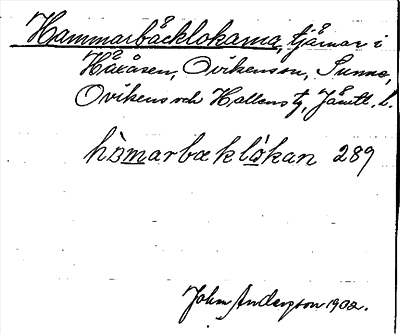 Hammarbäcklokarna, tjärnar i
Håxåsen, Ovikenssn, Sunne,
Ovikens och Hallens tg, Jämtl. l.
hòmarbæklòkan 289
John Anderson 1902.